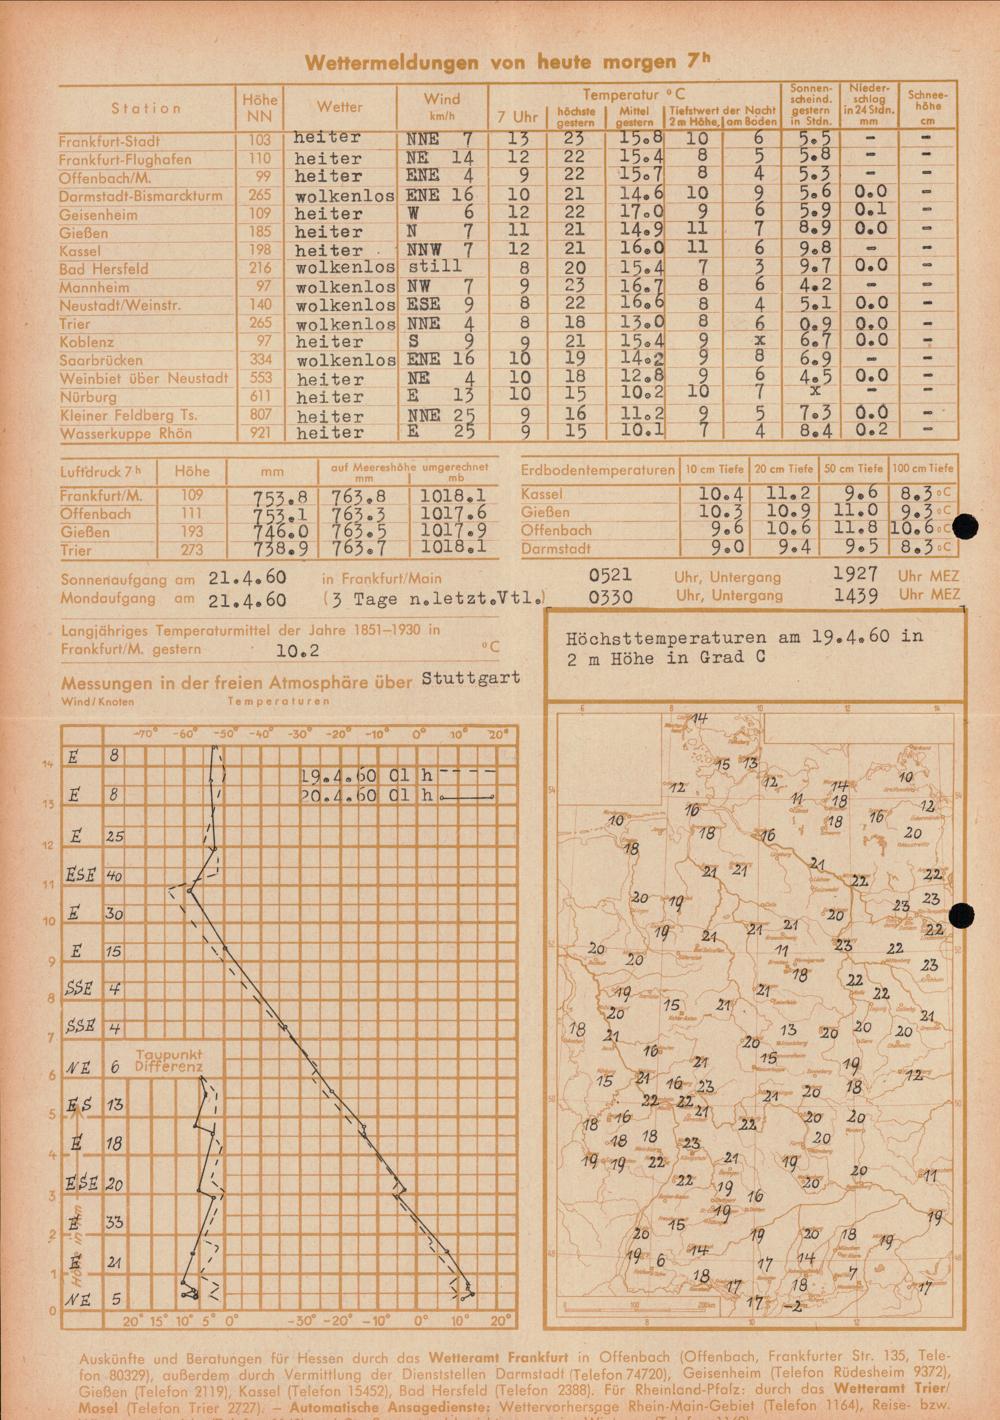 Wettermeldungen von heute morgen 7ʰ
Station Höhe NN Wetter Wind km/h Temperatur °C 7 Uhr höchste gestern Mittel gestern Tiefstwert der Nacht 2 m Höhe, am Boden Sonnenscheind. gestern in Stdn. Niederschlag in 24 Stdn. mm Schneehöhe cm
Frankfurt-Stadt 103 heiter NNE 7 13 23 15.8 10 6 5.5 - -
Frankfurt-Flughafen 110 heiter NE 14 12 22 15.4 8 5 5.8 - -
Offenbach/M. 99 heiter ENE 4 9 22 15.7 8 4 5.3 - -
Darmstadt-Bismarckturm 265 wolkenlos ENE 16 10 21 14.6 10 9 5.6 0.0 -
Geisenheim 109 heiter W 6 12 22 17.0 9 6 5.9 0.1 -
Gießen 185 heiter N 7 11 21 14.9 11 7 8.9 0.0 -
Kassel 198 heiter NNW 7 12 21 16.0 11 6 9.8 - -
Bad Hersfeld 216 wolkenlos still 8 20 15.4 7 3 9.7 0.0 -
Mannheim 97 wolkenlos NW 7 9 23 16.7 8 6 4.2 - -
Neustadt/Weinstr. 140 wolkenlos ESE 9 8 22 16.6 8 4 5.1 0.0 -
Trier 265 wolkenlos NNE 4 8 18 13.0 8 6 0.9 0.0 -
Koblenz 97 heiter S 9 9 21 15.4 9 x 6.7 0.0 -
Saarbrücken 334 wolkenlos ENE 16 10 19 14.2 9 8 6.9 - -
Weinbiet über Neustadt 553 heiter NE 4 10 18 12.8 9 6 4.5 0.0 -
Nürburg 611 heiter E 13 10 15 10.2 10 7 x - -
Kleiner Feldberg Ts. 807 heiter NNE 25 9 16 11.2 9 5 7.3 0.0 -
Wasserkuppe Rhön 921 heiter E 25 9 15 10.1 7 4 8.4 0.2 -
Luftdruck 7ʰ Höhe mm auf Meereshöhe umgerechnet mm mb
Frankfurt/M. 109 753.8 763.8 1018.1
Offenbach 111 753.1 763.3 1017.6
Gießen 193 746.0 763.5 1017.9
Trier 273 738.9 763.7 1018.1
Erdbodentemperaturen 10 cm Tiefe 20 cm Tiefe 50 cm Tiefe 100 cm Tiefe
Kassel 10.4 11.2 9.6 8.3 °C
Gießen 10.3 10.9 11.0 9.3 °C
Offenbach 9.6 10.6 11.8 10.6 °C
Darmstadt 9.0 9.4 9.5 8.3 °C
Sonnenaufgang am 21.4.60 in Frankfurt/Main 0521 Uhr, Untergang 1927 Uhr MEZ
Mondaufgang am 21.4.60 (3 Tage n.letzt.Vtl.) 0330 Uhr, Untergang 1439 Uhr MEZ
Langjähriges Temperaturmittel der Jahre 1851–1930 in
Frankfurt/M. gestern 10.2 °C
Messungen in der freien Atmosphäre über Stuttgart
Wind/Knoten Temperaturen
-70° -60° -50° -40° -30° -20° -10° 0° 10° 20°
19.4.60 01 h
20.4.60 01 h
14 E 8
13 E 8
12 E 25
11 ESE 40
10 E 30
9 E 15
8 SSE 4
7 SSE 4
6 NE 6
Taupunkt
Differenz
5 ES 13
4 E 18
3 ESE 20
2 E 33
1 E 21
0 NE 5
20° 15° 10° 5° 0° -30° -20° -10° 0° 10° 20°
Höchsttemperaturen am 19.4.60 in
2 m Höhe in Grad C
6 8 10 12 14
14
15 13
12 12 14 10
11 18 12
10 16 18 16
18 18 16 20
21 21 21 22 22
20 19 20 23 23
19 21 21 21 22
20 20 11 23 22
18 22 23
19 15 21 21 22
20 21
18 21 13 20 20 20
16 21 15 19
15 21 16 23 18 12
22 22 21 21 20
18 16 22 20 20
18 18 23 20
19 19 22 21 19 20 11
22 19 16 20
15 19 19
20 19 20 18 19
19 6 14 17 14 7
18 17 18 17
17 -2
0 100 200km
8 10 12
Auskünfte und Beratungen für Hessen durch das Wetteramt Frankfurt in Offenbach (Offenbach, Frankfurter Str. 135, Tele-
fon 80329), außerdem durch Vermittlung der Dienststellen Darmstadt (Telefon 74720), Geisenheim (Telefon Rüdesheim 9372),
Gießen (Telefon 2119), Kassel (Telefon 15452), Bad Hersfeld (Telefon 2388). Für Rheinland-Pfalz: durch das Wetteramt Trier/
Mosel (Telefon Trier 2727). – Automatische Ansagedienste: Wettervorhersage Rhein-Main-Gebiet (Telefon 1164), Reise- bzw.